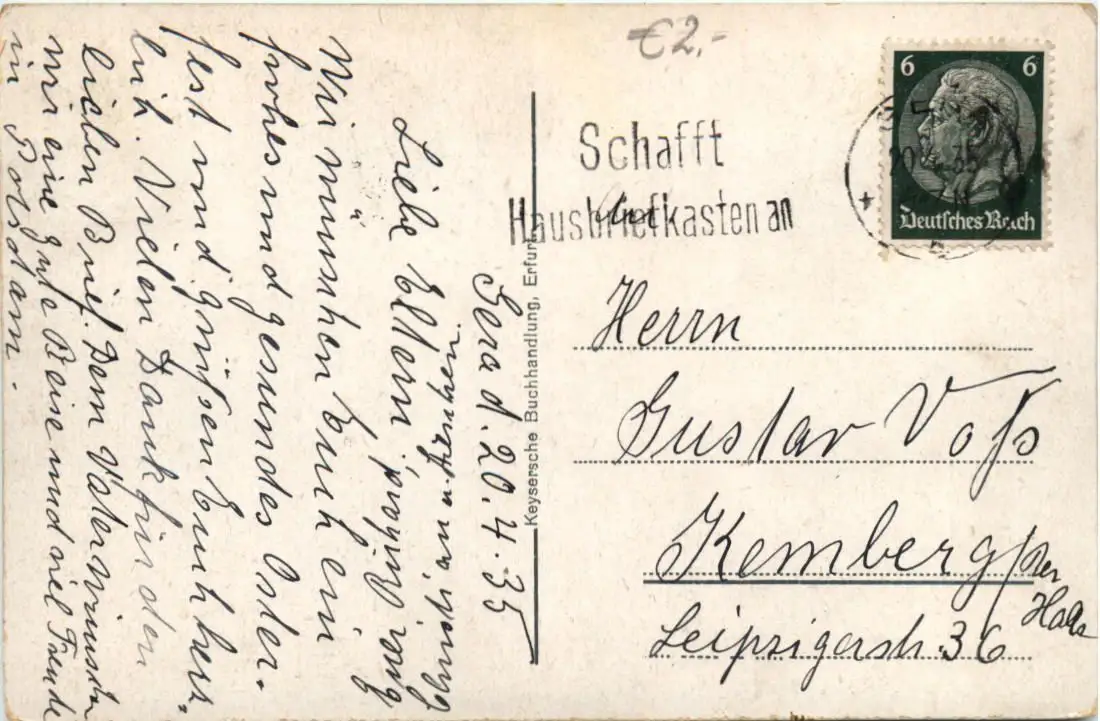 €2,-
6 6
Deutsches Reich
GERA
20
35
Schafft
Hausbriefkasten an
Herrn
Gustav Voß
Kemberg/Bez
Halle
Leipzigerstr. 36
Keysersche Buchhandlung, Erfurt
Gera d. 20.4.35
Liebe Eltern,
Wir wünschen Euch ein
frohes und gesundes Oster-
fest und grüßen Euch herz-
lich. Vielen Dank für den
lieben Brief. Dem Vater wünschen
wir eine gute Reise und viel Freude
in Potsdam.